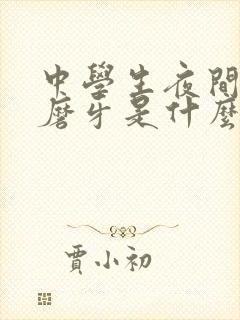 中學生夜間
磨牙是什麼
賈小初